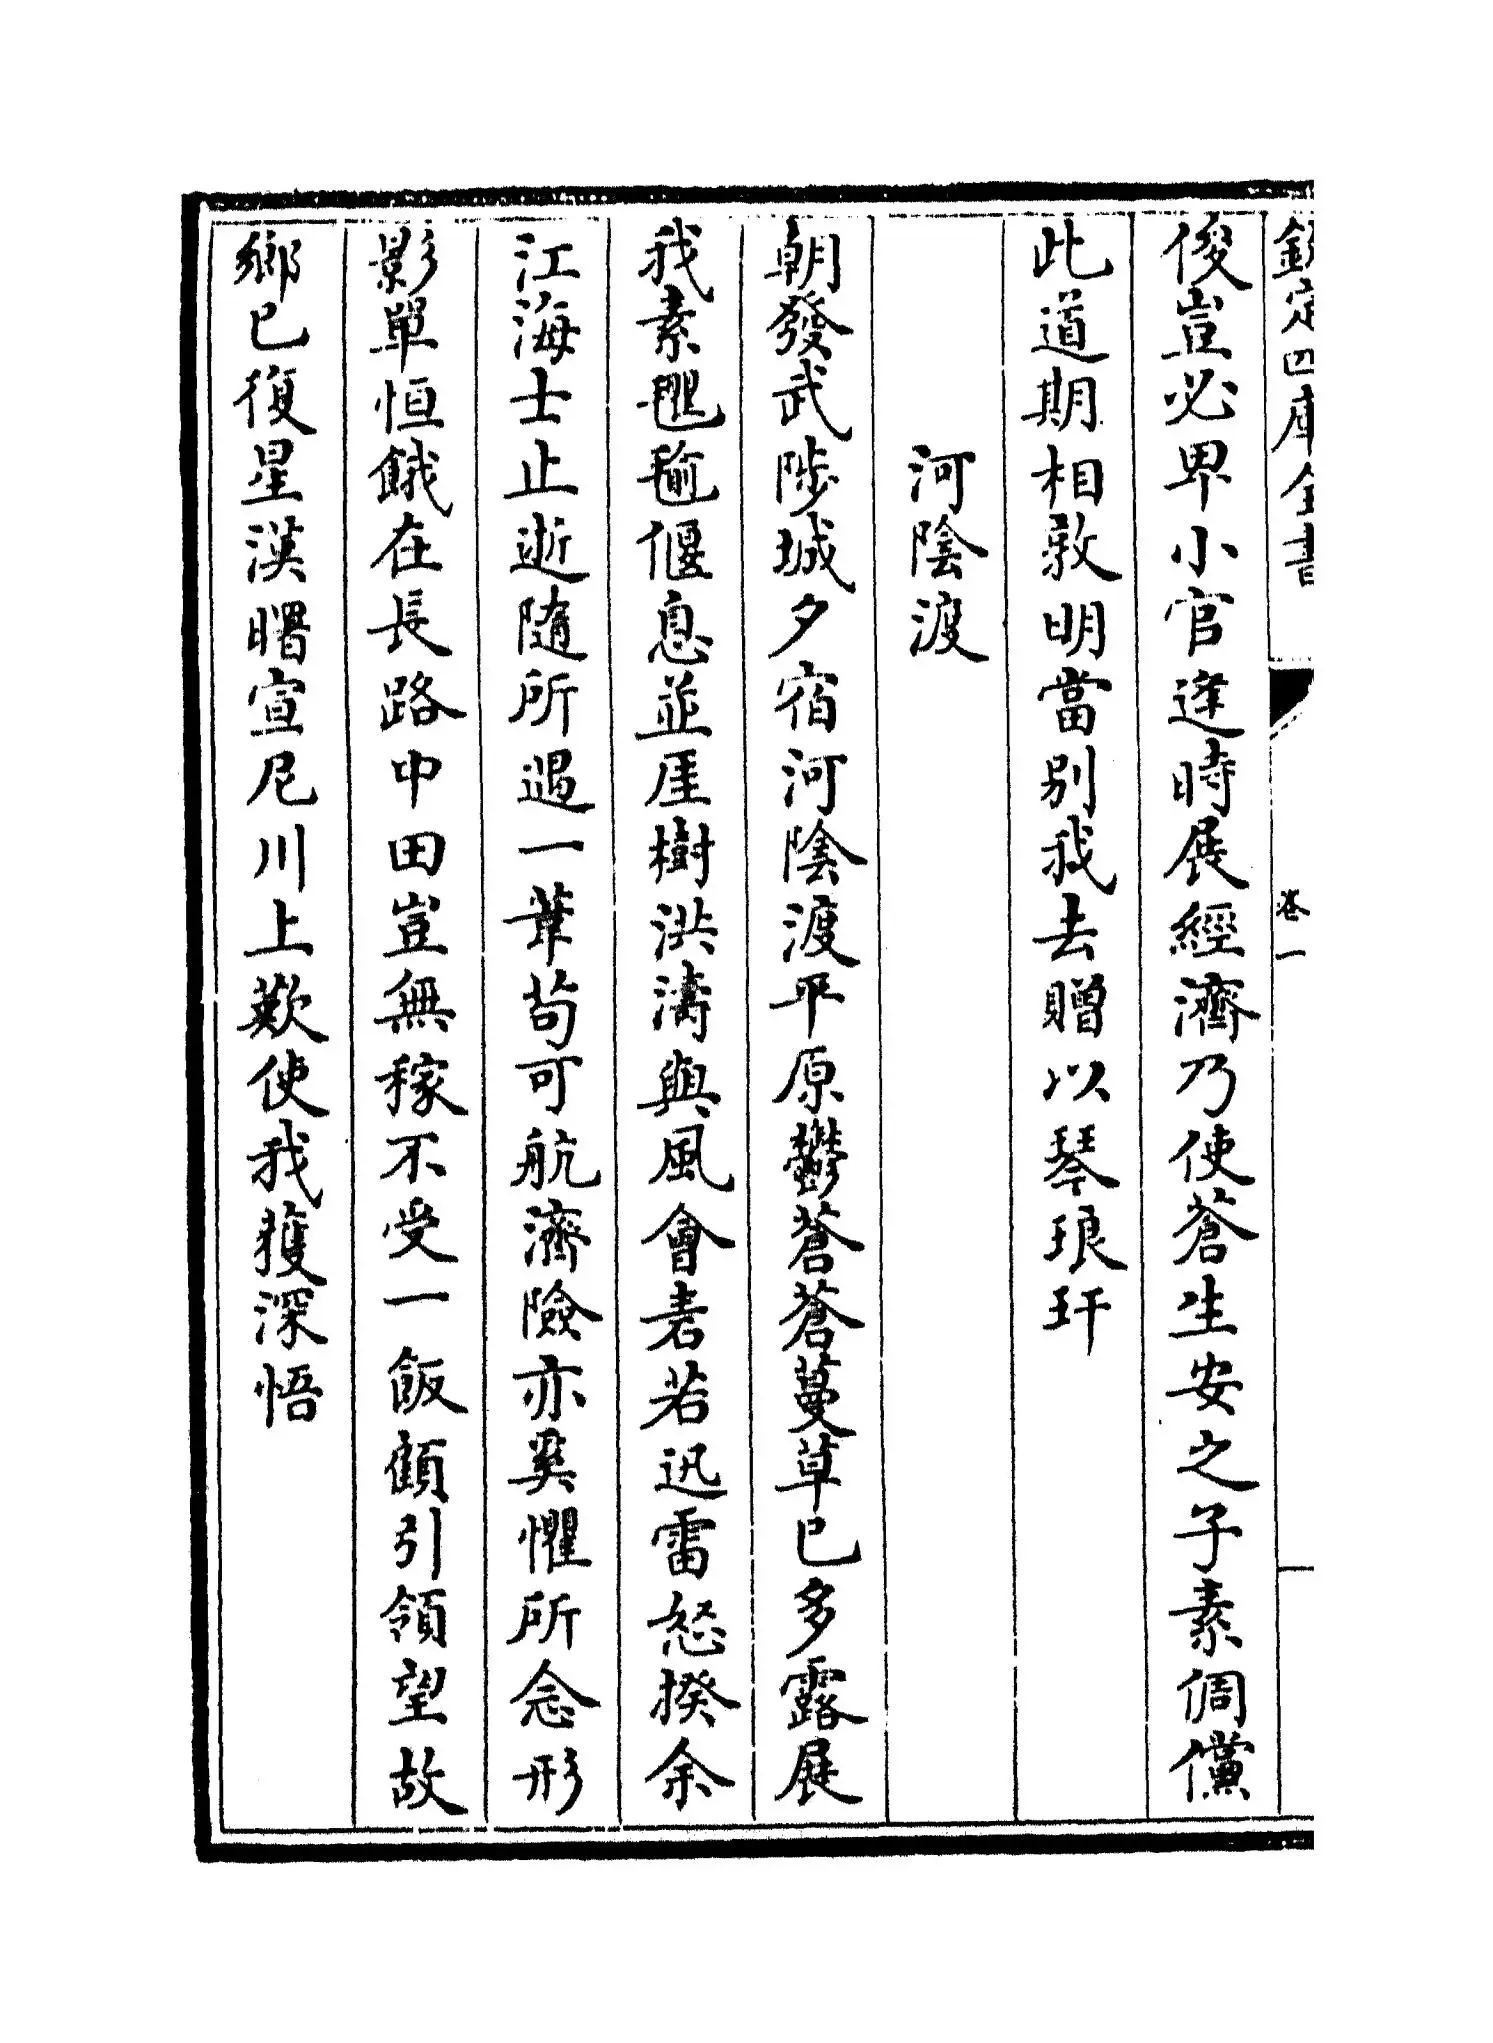 欽定四庫全書 卷一
俊豈必卑小官逢時展經濟乃使蒼生安之子素倜儻
此道期相敦明當別我去贈以琴琅玕
河陰渡
朝發武陟城夕宿河陰渡平原鬱蒼蒼蔓草已多露展
我素氍毹偃息並厓樹洪濤與風會砉若迅雷怒揆余
江海士止逝隨所遇一葦苟可航濟險亦奚懼所念形
影單恒餓在長路中田豈無稼不受一飯顧引領望故
鄉已復星漢曙宣尼川上歎使我獲深悟